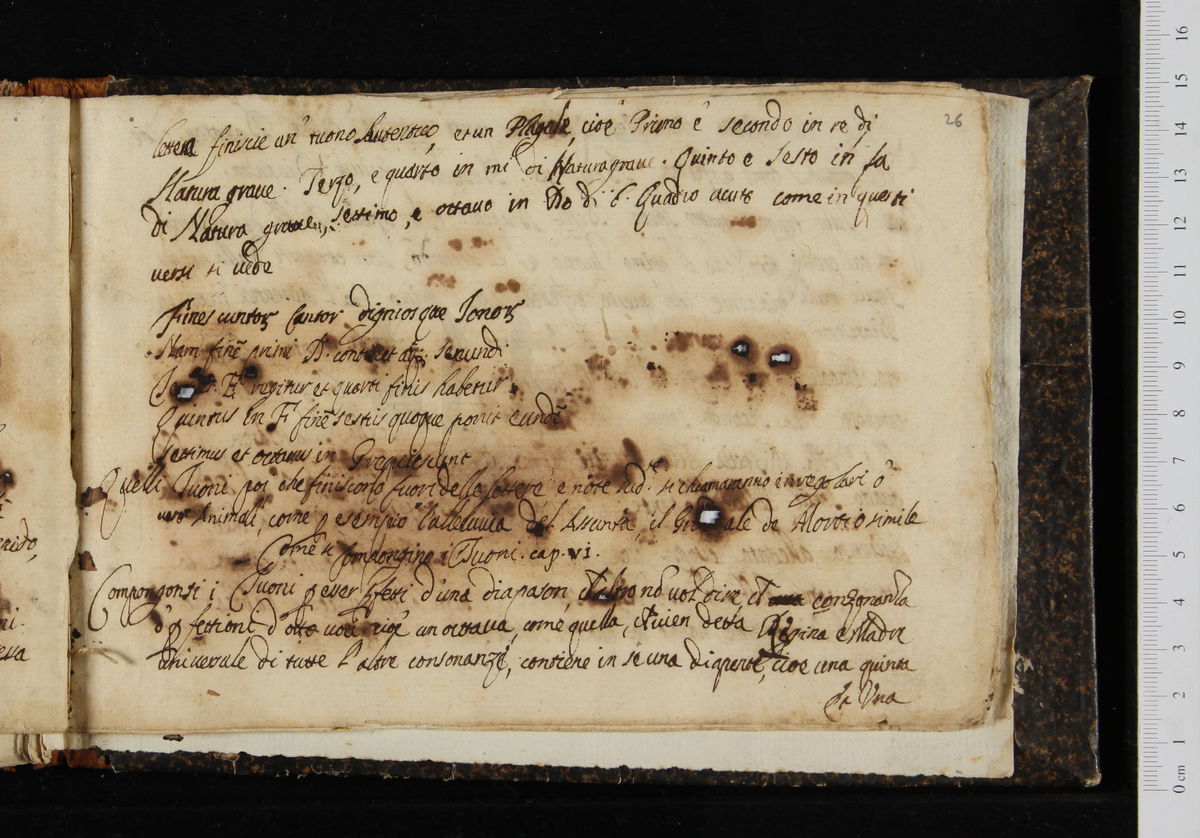 26
lettera finisce un' tuono Autentico, et un Plagale, cioè Primo è secondo in re di
Natura graue. Terzo, e quarto in mi di Natura graue. Quinto e sesto in fa
di Natura graue, settimo, e ottauo in di b. Quadro acuto come in questi
uersi si uede
Fines cantor digniosque Tonor
Nam fine primi D. secundi
E. regitur et quarti finis habetur
Quintus in F finē sestis quoque ponit eundē
Settimus et octauus in G requiescunt
Quelli Tuoni poi che finiscono fuori delle lettere e note sud.e si chiamaranno irregolari ò
uero Animali, come p esempio l'alleluuia del Assunta, il de Mortio simile
Come si compongino i Tuoni. cap. vi.
Compongonsi i Tuoni p eser d'una diapason, altro nō uol dire, consonanza
ò fettione d'otto uoci cioè un ottaua, come quella, uien detta Regina e Madre
uniuersale di tutte l'altre consonanze, contiene in se una diapente, cioè una quinta
Et Una
16
15
14
13
12
11
10
9
8
7
6
5
4
3
2
1
0 cm